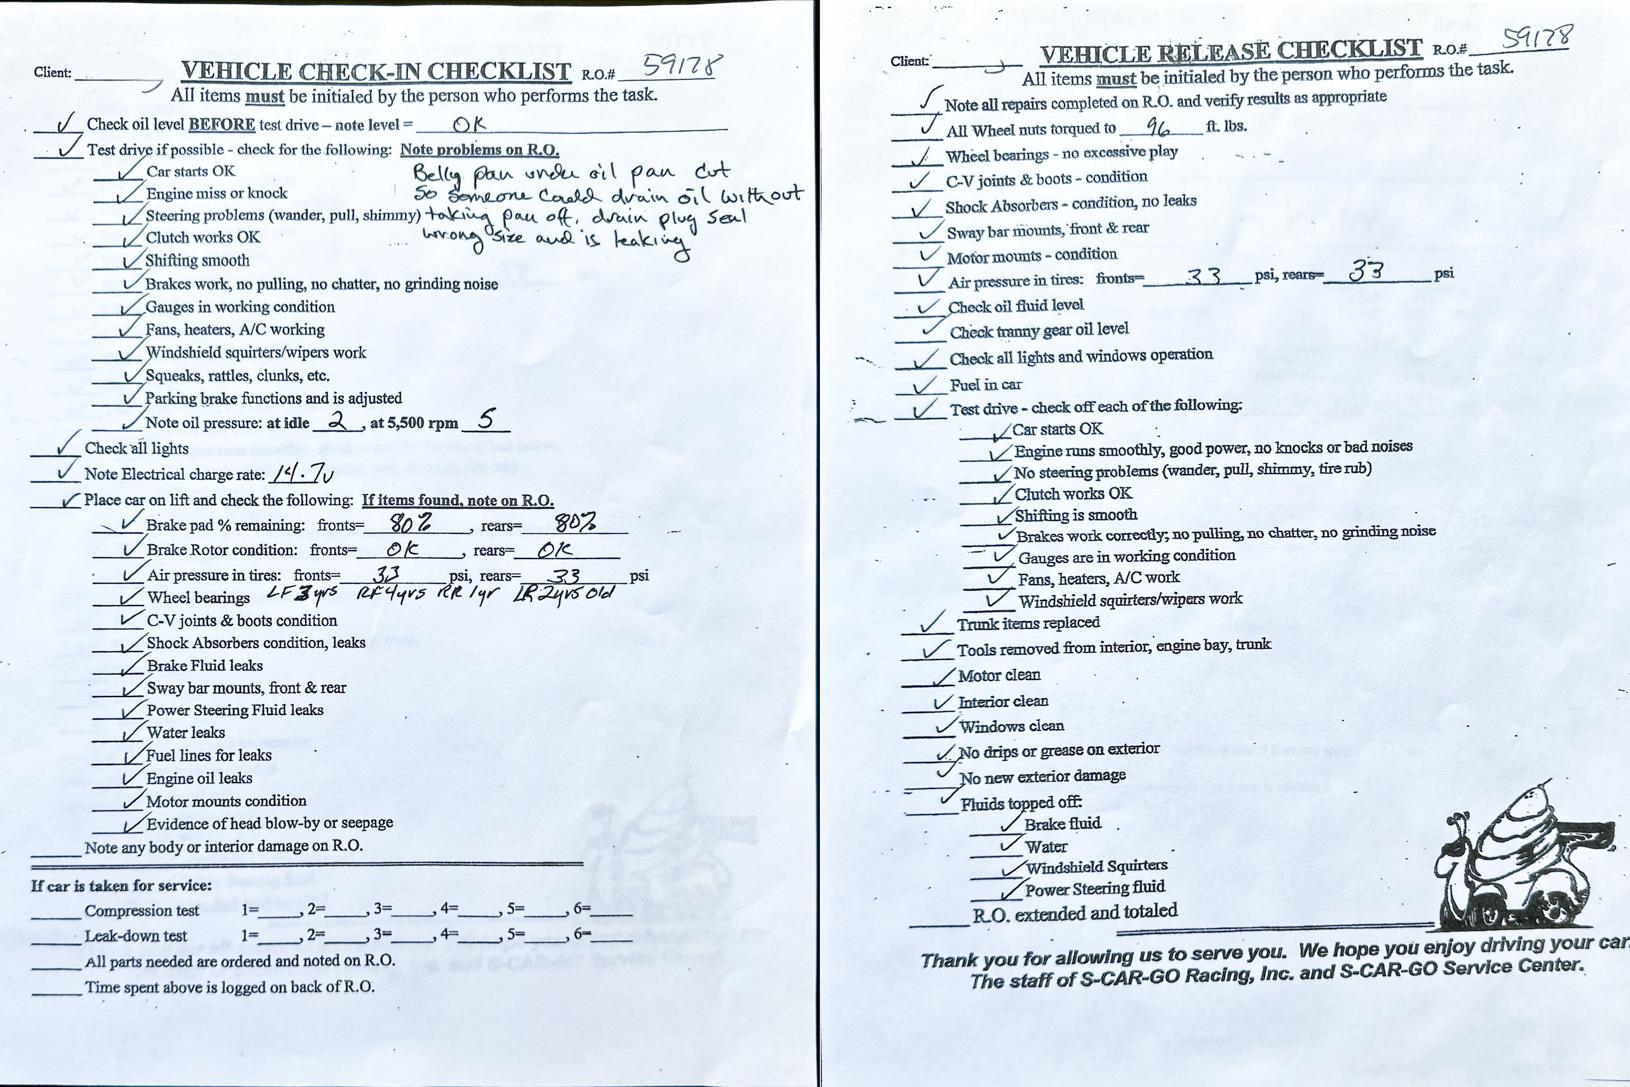 Client: VEHICLE CHECK-IN CHECKLIST R.O.# 59178
All items must be initialed by the person who performs the task.
✓ Check oil level BEFORE test drive – note level = OK
✓ Test drive if possible - check for the following: Note problems on R.O.
✓ Car starts OK
Belly pan under oil pan cut
✓ Engine miss or knock
so someone could drain oil without
✓ Steering problems (wander, pull, shimmy)
taking pan off, drain plug seal
✓ Clutch works OK
wrong size and is leaking
✓ Shifting smooth
✓ Brakes work, no pulling, no chatter, no grinding noise
✓ Gauges in working condition
✓ Fans, heaters, A/C working
✓ Windshield squirters/wipers work
✓ Squeaks, rattles, clunks, etc.
✓ Parking brake functions and is adjusted
✓ Note oil pressure: at idle 2, at 5,500 rpm 5
✓ Check all lights
✓ Note Electrical charge rate: 14.7v
✓ Place car on lift and check the following: If items found, note on R.O.
✓ Brake pad % remaining: fronts= 80%, rears= 80%
✓ Brake Rotor condition: fronts= OK, rears= OK
✓ Air pressure in tires: fronts= 33 psi, rears= 33 psi
✓ Wheel bearings LF 3yrs RF 4yrs RR 1yr LR 2yrs old
✓ C-V joints & boots condition
✓ Shock Absorbers condition, leaks
✓ Brake Fluid leaks
✓ Sway bar mounts, front & rear
✓ Power Steering Fluid leaks
✓ Water leaks
✓ Fuel lines for leaks
✓ Engine oil leaks
✓ Motor mounts condition
✓ Evidence of head blow-by or seepage
Note any body or interior damage on R.O.
If car is taken for service:
Compression test 1=____, 2=____, 3=____, 4=____, 5=____, 6=____
Leak-down test 1=____, 2=____, 3=____, 4=____, 5=____, 6=____
All parts needed are ordered and noted on R.O.
Time spent above is logged on back of R.O.
Client: VEHICLE RELEASE CHECKLIST R.O.# 59178
All items must be initialed by the person who performs the task.
✓ Note all repairs completed on R.O. and verify results as appropriate
✓ All Wheel nuts torqued to 96 ft. lbs.
✓ Wheel bearings - no excessive play
✓ C-V joints & boots - condition
✓ Shock Absorbers - condition, no leaks
✓ Sway bar mounts, front & rear
✓ Motor mounts - condition
✓ Air pressure in tires: fronts= 33 psi, rears= 33 psi
✓ Check oil fluid level
✓ Check tranny gear oil level
✓ Check all lights and windows operation
✓ Fuel in car
✓ Test drive - check off each of the following:
✓ Car starts OK
✓ Engine runs smoothly, good power, no knocks or bad noises
✓ No steering problems (wander, pull, shimmy, tire rub)
✓ Clutch works OK
✓ Shifting is smooth
✓ Brakes work correctly; no pulling, no chatter, no grinding noise
✓ Gauges are in working condition
✓ Fans, heaters, A/C work
✓ Windshield squirters/wipers work
✓ Trunk items replaced
✓ Tools removed from interior, engine bay, trunk
✓ Motor clean
✓ Interior clean
✓ Windows clean
✓ No drips or grease on exterior
✓ No new exterior damage
✓ Fluids topped off:
✓ Brake fluid
✓ Water
✓ Windshield Squirters
✓ Power Steering fluid
R.O. extended and totaled
Thank you for allowing us to serve you. We hope you enjoy driving your car.
The staff of S-CAR-GO Racing, Inc. and S-CAR-GO Service Center.